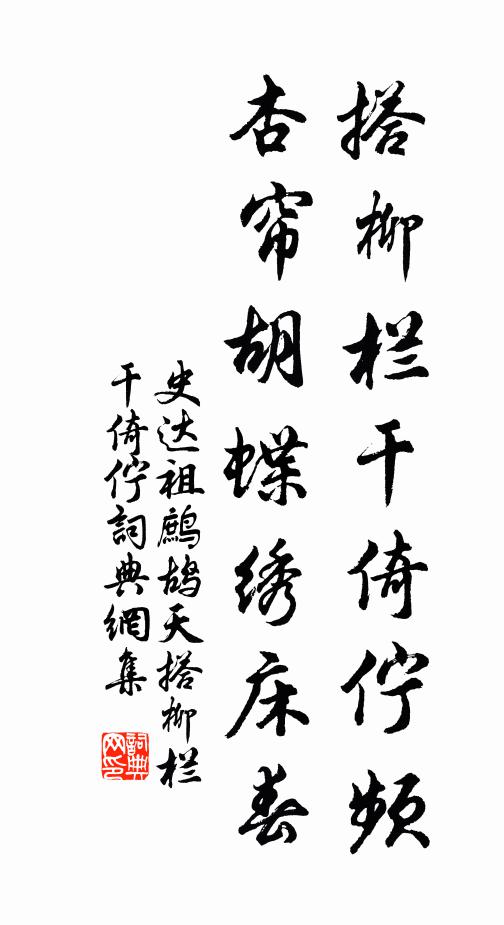 搭柳栏干倚伫频
杏帘胡蝶绣床春
史达祖鹧鸪天搭柳栏
干倚伫詞典網集
詞典
网印